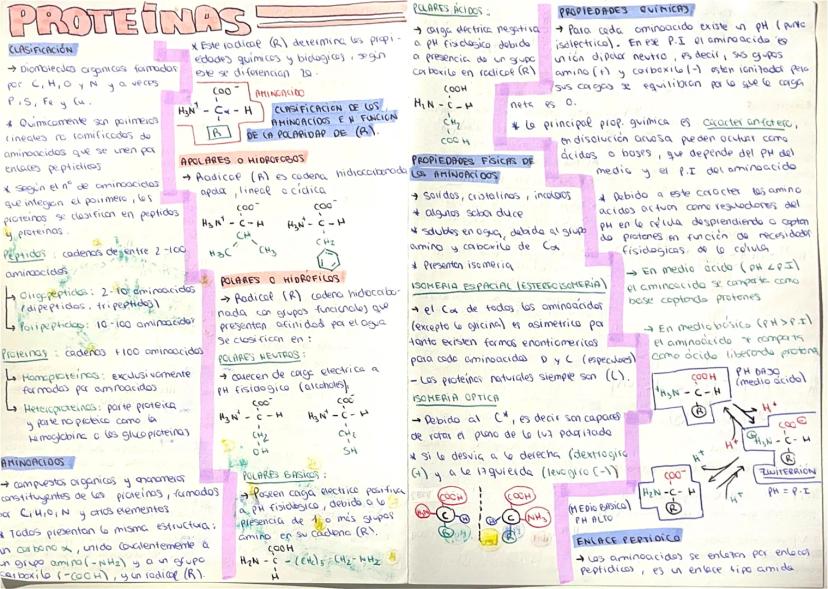 PROTEÍNAS
CLASIFICACIÓN
→ Biomoleculas organicas formadas
por C, H, O y N y a veces
P, S, Fe y Cu.
* Quimicamente son polimeros
lineales no ramificados de
aminoacidos que se unen por
enlaces peptidicos
* Según el nº de aminoacidos
que integran el polimero, las
proteinas se clasifican en peptidos
y proteinas.
Peptidos: cadenas de entre 2-100
aminoacidos
↳ Oligopeptidos: 2-10 aminoacidos
(dipeptidos, tripeptidos)
↳ Polipeptidos: 10-100 aminoacidos
Proteinas: cadenas +100 aminoacidos
↳ Homoproteinas: exclusivamente
formadas por aminoacidos
↳ Heteroproteinas: parte proteica
y parte no proteica como la
hemoglobina o las glucoproteinas)
AMINOACIDOS
→ compuestos organicos y
constituyentes de las proteinas, formados
por C, H, O, N y otros elementos
* Todos presentan la misma estructura:
un carbono α, unido covalentemente a
un grupo amino (-NH2) y a un grupo
carboxilo (-COOH), y un radical (R).
* Este radical (R) determina las propi-
edades quimicas y biologicas, según
este se diferencian 20.
COO⁻
AMINOACIDO
H3N⁺ - Cα - H
R
CLASIFICACION DE LOS
AMINOACIDOS EN FUNCION
DE LA POLARIDAD DE (R).
APOLARES O HIDROFOBOS
→ Radical (R) es cadena hidrocarbonada
apolar, lineal o ciclica
COO⁻ COO⁻
H3N⁺ - C - H H3N⁺ - C - H
CH CH2
H3C CH3
POLARES O HIDRÓFILOS
→ Radical (R) cadena hidrocarbo-
nada con grupos funcionales que
presentan afinidad por el agua
se clasifican en:
POLARES NEUTROS:
→ carecen de carga electrica a
pH fisiologico (alcoholes)
COO⁻ COO⁻
H3N⁺ - C - H H3N⁺ - C - H
CH2 CH2
OH SH
POLARES BASICOS:
→ Poseen carga electrica positiva
a pH fisiologico, debido a la
presencia de 1 o más grupos
amino en su cadena (R).
COOH
H2N - C - (CH2)3 - CH2 - NH2
H
POLARES ÁCIDOS:
→ carga electrica negativa
a pH fisiologico debido
a presencia de un grupo
carboxilo en radical (R)
COOH
H2N - C - H
CH2
COOH
PROPIEDADES FÍSICAS DE
LOS AMINOÁCIDOS
→ Solidos, cristalinos, incoloros
* algunos sabor dulce
* solubles en agua, debido al grupo
amino y carboxilo de Cα
* Presentan isomeria
ISOMERIA ESPACIAL (ESTEREOISOMERÍA)
→ el Cα de todos los aminoacidos
(excepto la glicina) es asimetrico por
tanto existen formas enantiomericas
para cada aminoacidos D y L (especulares)
- Las proteínas naturales siempre son (L).
ISOMERÍA OPTICA
→ Debido al C*, es decir son capaces
de rotar el plano de la luz polarizada
* si la desvia a la derecha (dextrogiro
(+) y a la izquierda (levogiro (-))
COOH COOH
C H H C NH3
R R
PROPIEDADES QUIMICAS:
→ Para cada aminoacido existe un pH (punto
isoelectrico). En ese P.I el aminoacido es
un ión dipolar neutro, es decir, sus grupos
amino (+) y carboxilo (-) estan ionizados pero
sus cargas se equilibran por lo que la carga
neta es 0.
* La principal prop. quimica es caracter anfotero,
en disolución acuosa pueden actuar como
ácidos o bases, que depende del pH del
medio y el P.I del aminoacido
* Debido a este caracter los amino
acidos actuan como reguladores del
pH en la célula desprendiendo o captan
do protones en función de necesidades
fisiologicas de la celula
→ En medio ácido (pH < P.I)
el aminoacido se comporta como
base captando protones
→ En medio básico (pH > P.I)
el aminoácido se comporta
como ácido liberando protones
COOH
⁺H3N - C - H
R
PH BAJO
(medio ácido)
H⁺
H⁺
COO⁻
H3N - C - H
R
ZWITTERIÓN
PH = P.I
COO⁻
H2N - C - H
R
H⁺
H⁺
(MEDIO BÁSICO)
PH ALTO
ENLACE PEPTÍDICO
→ Los aminoacidos se enlazan por enlaces
peptidicos, es un enlace tipo amida